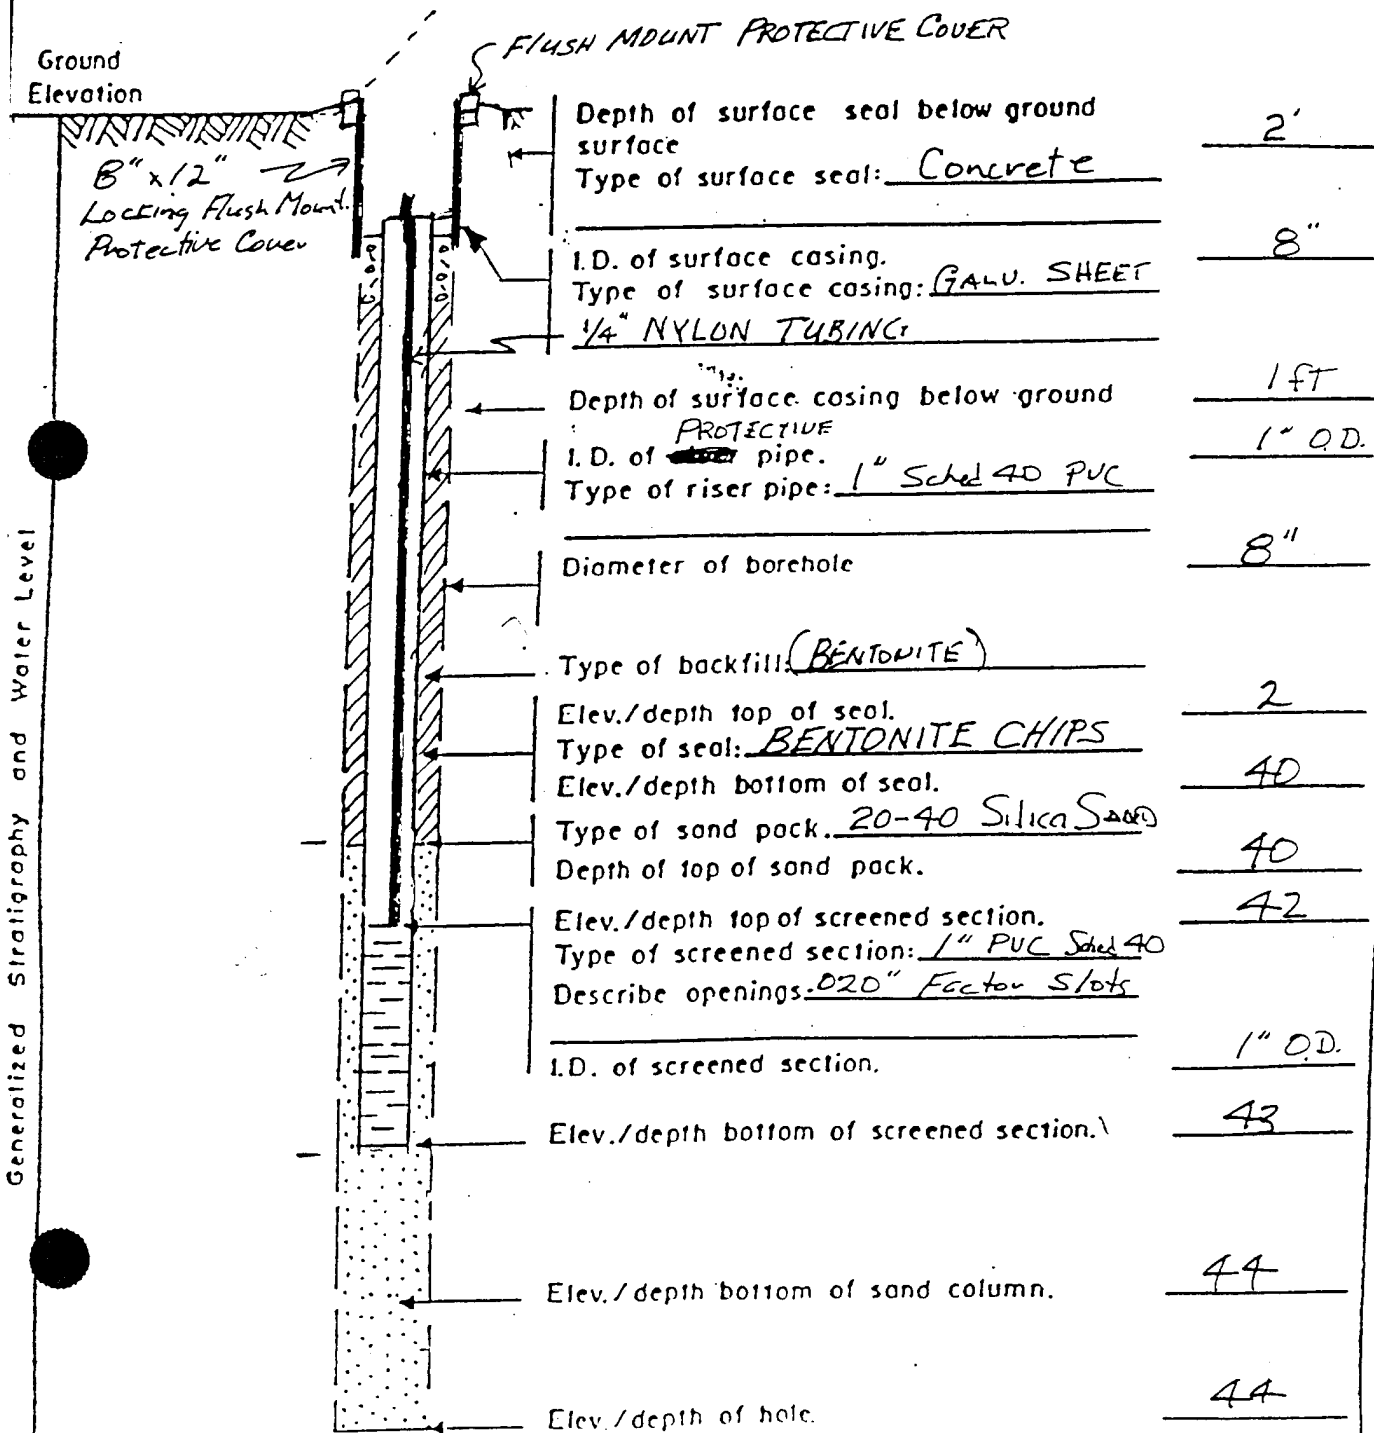 FLUSH MOUNT PROTECTIVE COVER
Ground
Elevation
8" x 12"
Locking Flush Mount.
Protective Cover
Depth of surface seal below ground
surface
2'
Type of surface seal: Concrete
I.D. of surface casing.
8"
Type of surface casing: GALV. SHEET
1/4" NYLON TUBING
Depth of surface casing below ground
1 fT
PROTECTIVE
I.D. of pipe.
1" O.D.
Type of riser pipe: 1" Sched 40 PVC
Diameter of borehole
8"
Type of backfill: (BENTONITE)
Elev./depth top of seal.
2
Type of seal: BENTONITE CHIPS
Elev./depth bottom of seal.
40
Type of sand pack. 20-40 Silica SAND
Depth of top of sand pack.
40
Elev./depth top of screened section.
42
Type of screened section: 1" PVC Sched 40
Describe openings. .020" Factor Slots
I.D. of screened section.
1" O.D.
Elev./depth bottom of screened section.
43
Elev./depth bottom of sand column.
44
Elev./depth of hole.
44
Generalized Stratigraphy and Water Level